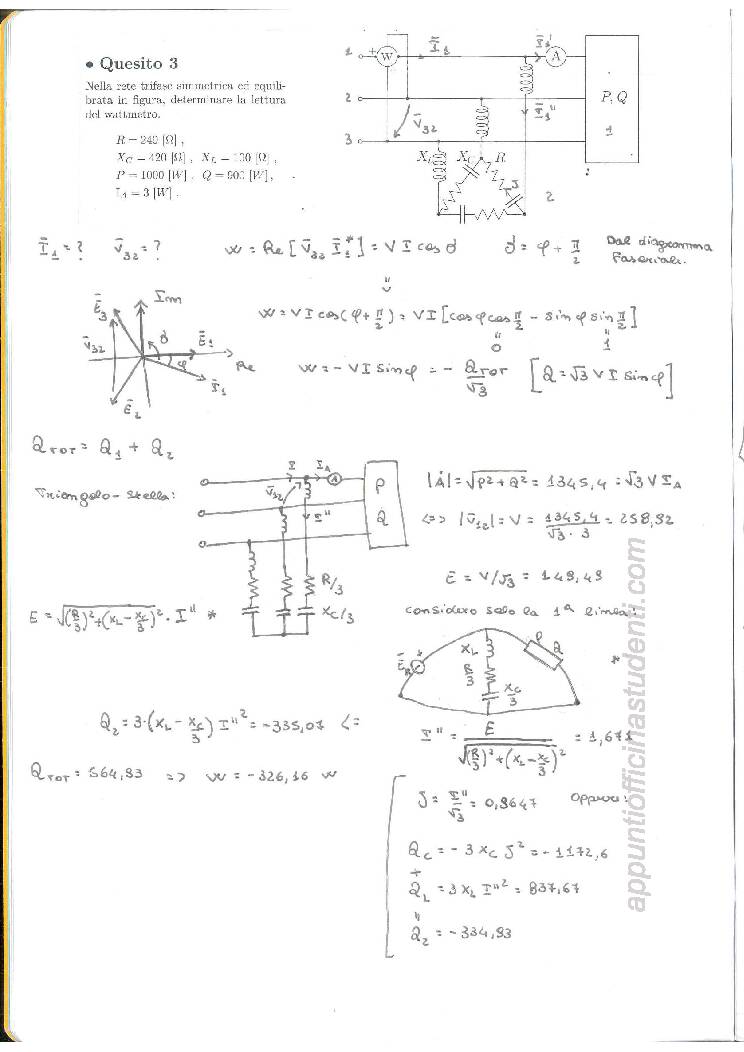 • Quesito 3
Nella rete trifase simmetrica ed equili-
brata in figura, determinare la lettura
del wattmetro.
R = 240 [Ω] ,
X_C = 420 [Ω] , X_L = 100 [Ω] ,
P = 1000 [W] Q = 900 [W] ,
I_A = 3 [W] .
1 + W Ī_1 Ī_1' A
2 P, Q
V̄_32 Ī_1'' 1
3
X_L X_C R
J
2
Ī_1 = ? V̄_32 = ? W = Re [V̄_32 Ī_1^*] = V I cos δ δ = φ + π/2 Dal diagramma
Fasoriale.
W = V I cos(φ + π/2) = V I [cos φ cos π/2 - sin φ sin π/2]
" "
0 1
W = - V I sin φ = - Q_TOT/√3 [Q = √3 V I sin φ]
Im
Ē_3
V̄_32 δ Ē_1
φ Re
Ī_1
Ē_2
Q_TOT = Q_1 + Q_2
Triangolo - stella:
I I_A A
P
V̄_32
I'' Q
R/3
X_C/3
|Ȧ| = √(P² + Q²) = 1345,4 = √3 V I_A
<=> |V̄_12| = V = 1345,4/(√3 · 3) = 258,92
E = V/√3 = 149,49
considero solo la 1ª linea:
E = √((R/3)² + (X_L - X_C/3)²) · I'' *
Ē_R X_L P Q
R/3 *
X_C/3
Q_2 = 3 · (X_L - X_C/3) I''² = -335,07 <=
I'' = E/√((R/3)² + (X_L - X_C/3)²) = 1,671
Q_TOT = 564,93 => W = -326,16 W
J = I''/√3 = 0,9647 oppure:
Q_C = - 3 X_C J² = - 1172,6
+
Q_L = 3 X_L I''² = 837,67
"
Q_2 = - 334,93
appuntiofficinastudenti.com